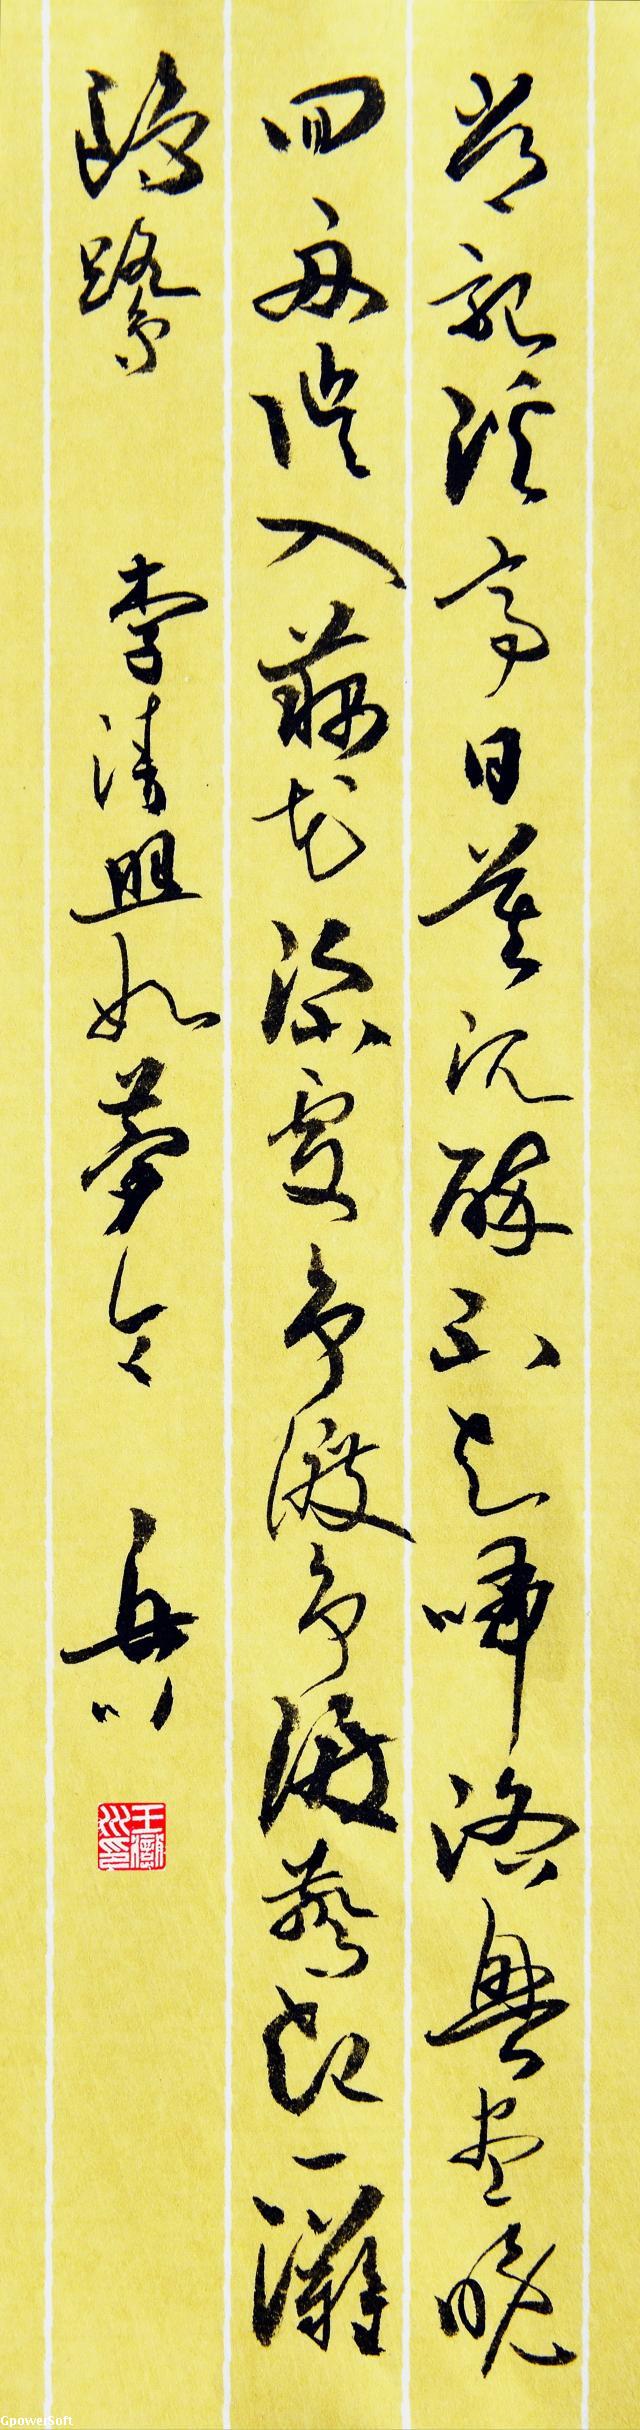 常記溪亭日暮沉醉不知歸路興盡晚
回舟誤入藕花深處爭渡爭渡驚起一灘
鷗鷺 李清照如夢令
GpowerSoft